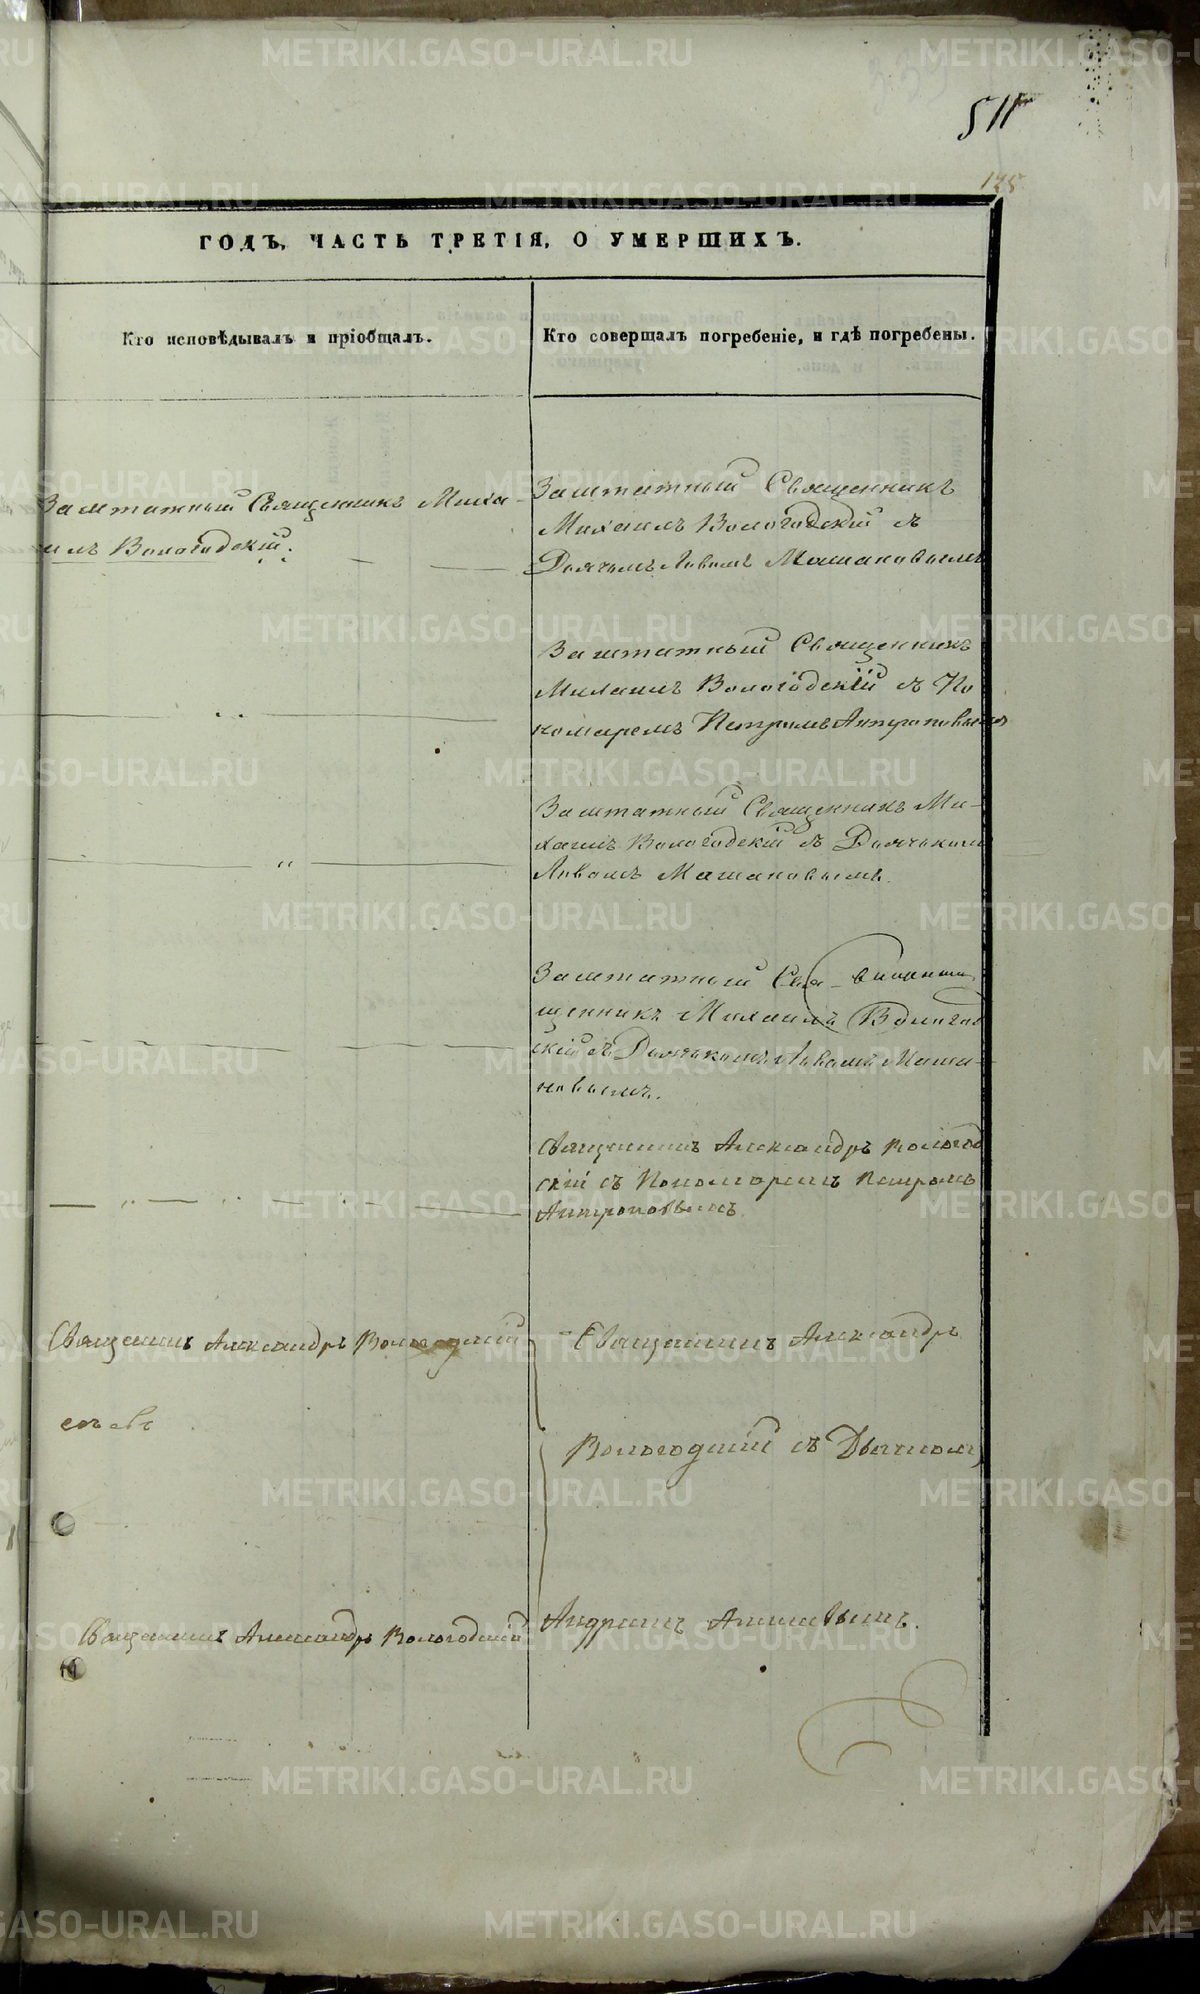 511
125
ГОДЪ, ЧАСТЬ ТРЕТІЯ, О УМЕРШИХЪ.
Кто исповѣдывалъ и пріобщалъ.
Кто совершалъ погребеніе, и гдѣ погребены.
Заштатный Священникъ Миха-
илъ Вологодскій.
Заштатный Священникъ
Михаилъ Вологодскій съ
Дьячкомъ Львомъ Машановымъ
Заштатный Священникъ
Михаилъ Вологодскій съ По
номаремъ Петромъ Антроповымъ
Заштатный Священникъ Ми-
хаилъ Вологодскій съ Дьячкомъ
Львомъ Машановымъ.
Заштатный Свя-
щенникъ Михаилъ Вологод
скій съ Дьячкомъ Львомъ Маша-
новымъ.
Священникъ Александръ Вологод
скій съ Пономаремъ Петромъ
Антроповымъ
Священникъ Александръ Вологодскій
Священникъ Александръ
Вологодскій съ Дьячкомъ
Священникъ Александръ Вологодскій
Андреемъ
METRIKI.GASO-URAL.RU